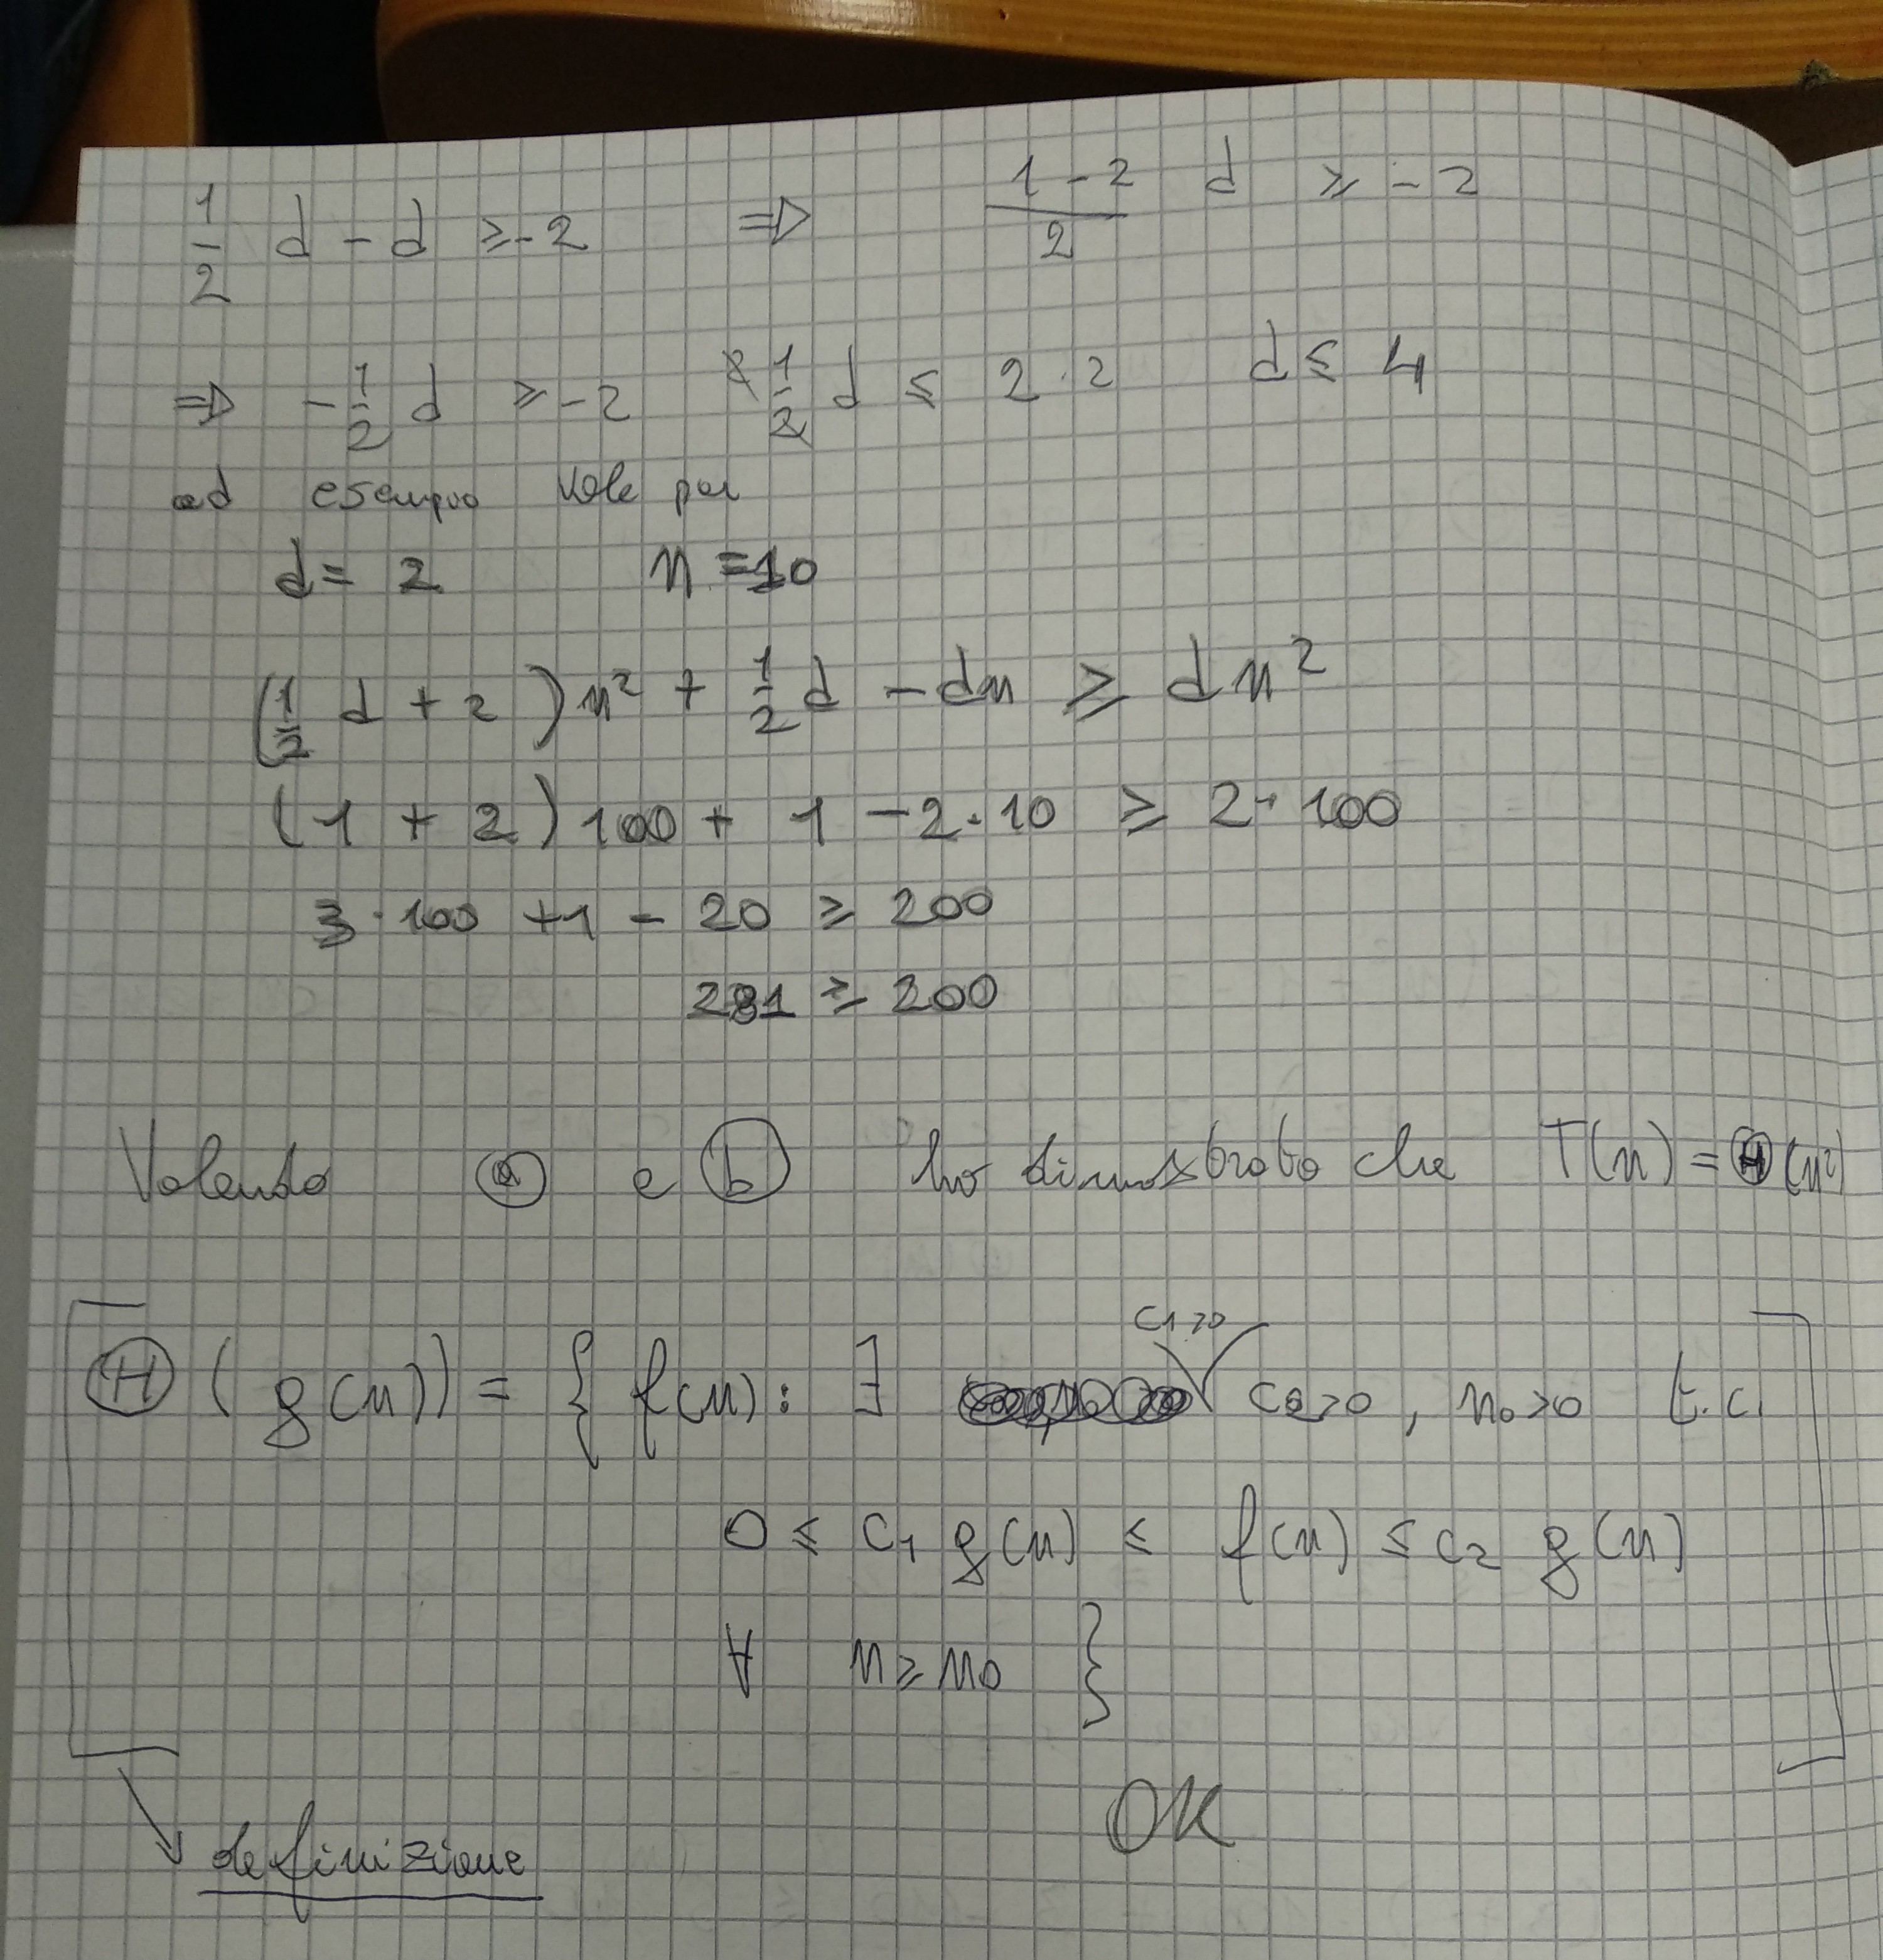 1/2 d - d ≥ -2 ⇒ (1-2)/2 d ≥ -2
⇒ -1/2 d ≥ -2 2 1/2 d ≤ 2·2 d ≤ 4
ad esempio vale per
d = 2 n = 10
(1/2 d + 2)n² + 1/2 d - dn ≥ dn²
(1 + 2)100 + 1 - 2·10 ≥ 2·100
3·100 + 1 - 20 ≥ 200
281 ≥ 200
Valendo ⓐ e ⓑ ho dimostrato che T(n) = Θ(n²)
Θ(g(n)) = { f(n): ∃ c1>0 c2>0, n0>0 t.c.
0 ≤ c1 g(n) ≤ f(n) ≤ c2 g(n)
∀ n ≥ n0 }
OK
definizione